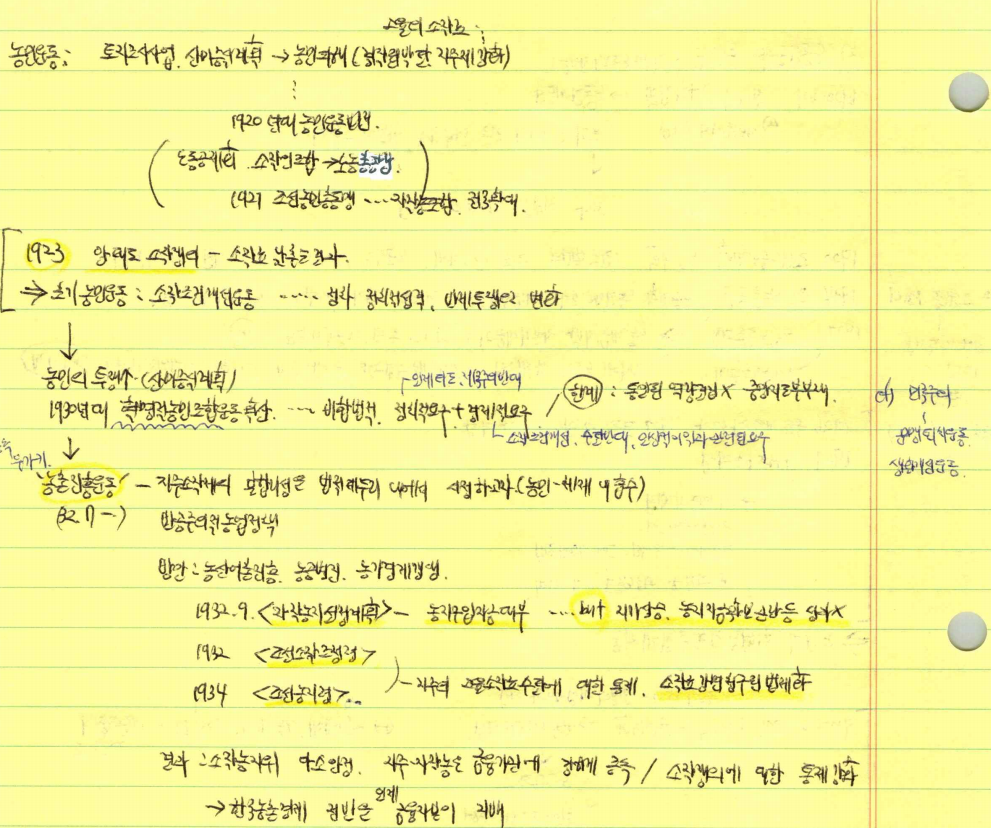 고율의 소작료
농민운동: 토지조사사업, 산미증식계획 → 농민피폐 (식민지 지주제 강화)
1920년대 농민운동발전.
(노동공제회 소작인조합 → 노농총동맹
1927 조선농민총동맹 ···· 자작농조합, 전국확대.)
1923 암태도 소작쟁의 - 소작료 인하 효과.
⇒ 초기 농민운동: 소작조건개선운동 ····· 점차 정치적성격, 반제투쟁으로 변화
↓
농민의 투쟁↑ (산미증식계획)
일제타도, 제국주의반대
1930년대 혁명적농민조합운동확산. ··· 비합법적, 정치적요구 + 경제적요구 / 한계: 통일된 역량결집X 중앙지도부부재.
소작조건개선, 수탈반대, 일상적 이익과 관련된 요구
cf) 민족주의
문맹퇴치운동.
생활개선운동.
↓
농촌진흥운동 - 지주소작제의 모순나성은 법적테두리 내에서 시정하고자 (농민-체제 내 흡수)
(32.7 ~) 반공주의적농업정책
방안: 농산어촌진흥, 농공병진, 농가경제갱생.
1932.9. <자작농지설정계획> - 농지구입자금 대부 ···· but 지가상승, 농지자금확보 곤란등 성과X
1932 <조선소작조정령>
1934 <조선농지령> ) - 지주의 고율소작료수취에 대한 통제, 소작료감면청구권 법제화
결과: 소작농지위 다소안정, 지주·자작농은 금융기관에 강하게 종속 / 소작쟁의에 대한 통제강화
→ 한국농촌경제 전반을 일제 금융자본이 지배